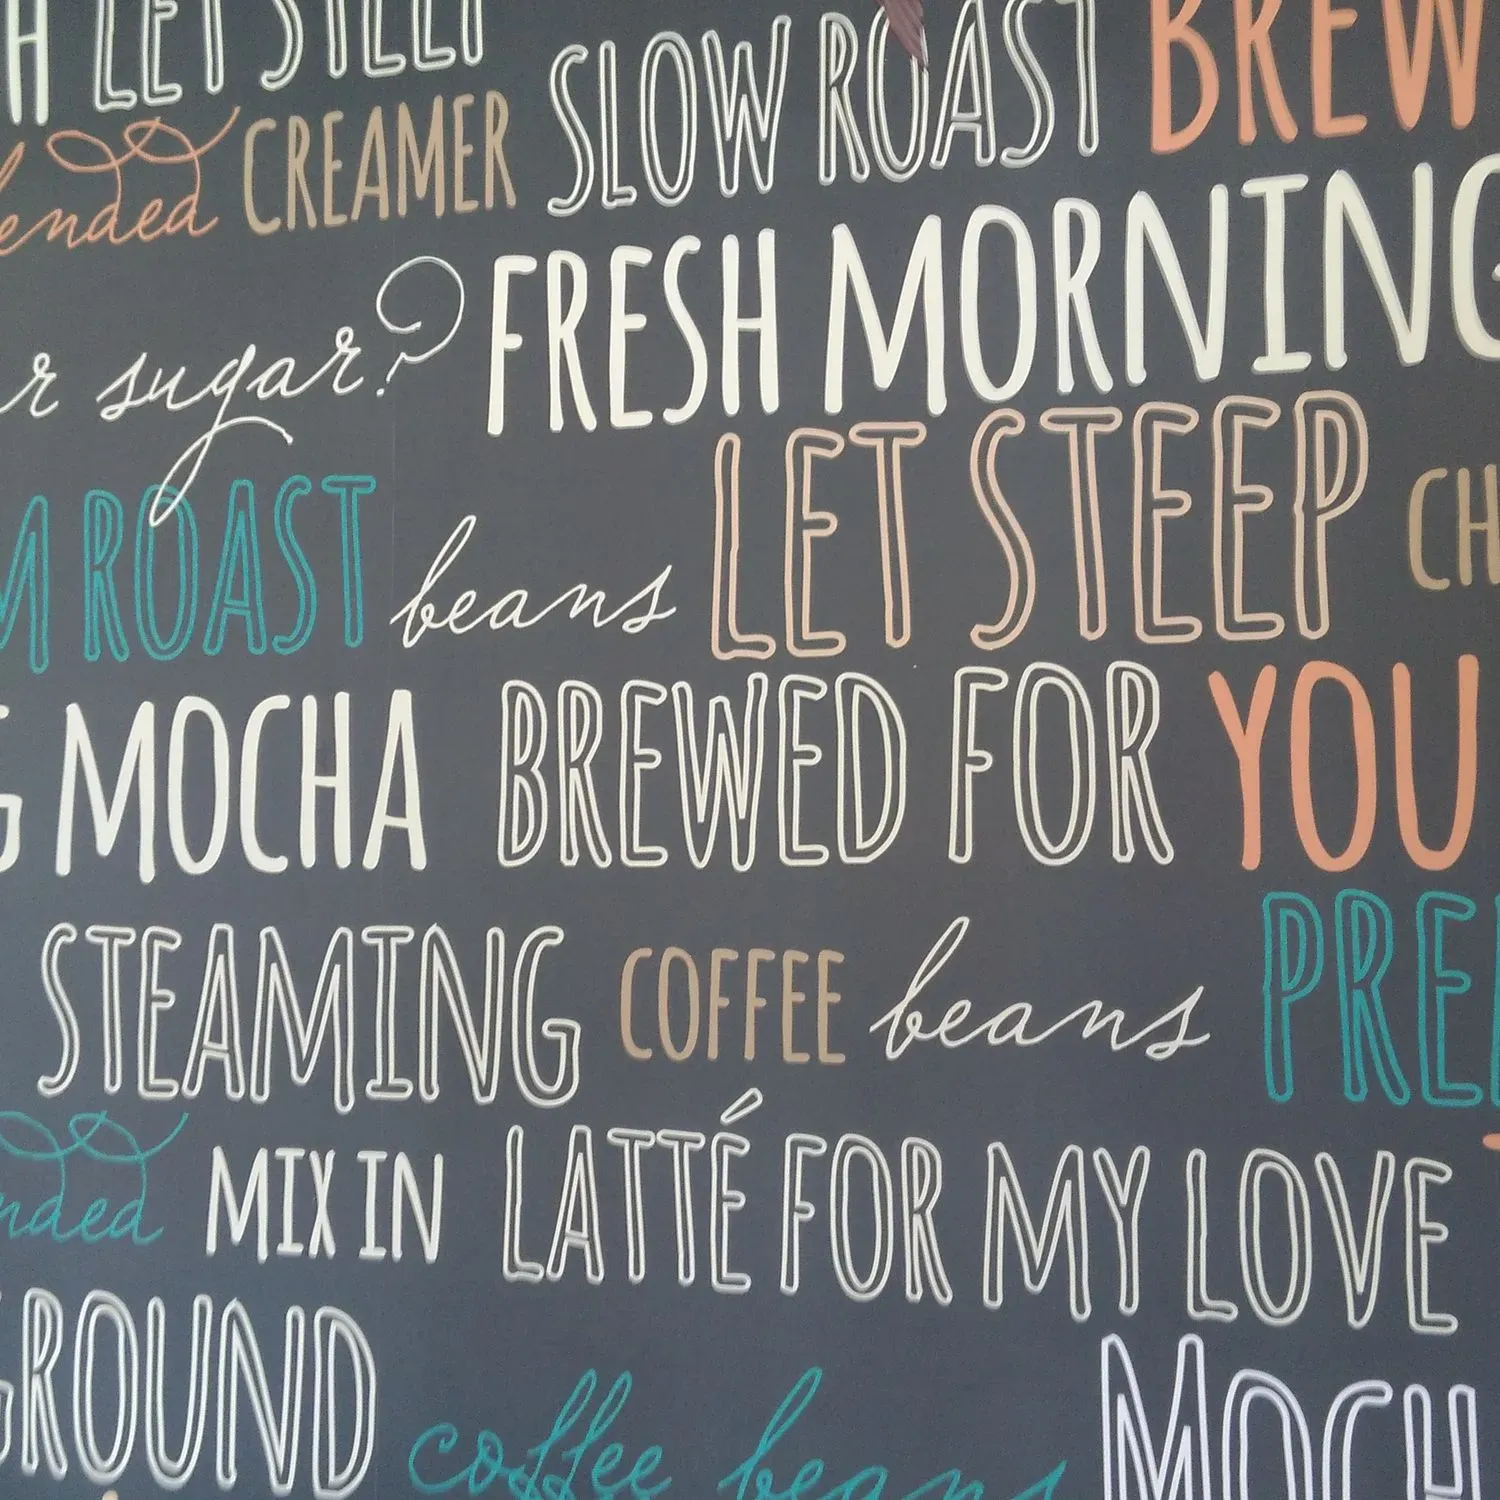 H LET STEEP
ended CREAMER SLOW ROAST BREW
r sugar? FRESH MORNING
M ROAST beans LET STEEP CH
G MOCHA BREWED FOR YOU
STEAMING COFFEE beans PRE
nded MIX IN LATTÉ FOR MY LOVE
GROUND coffee beans MOCH